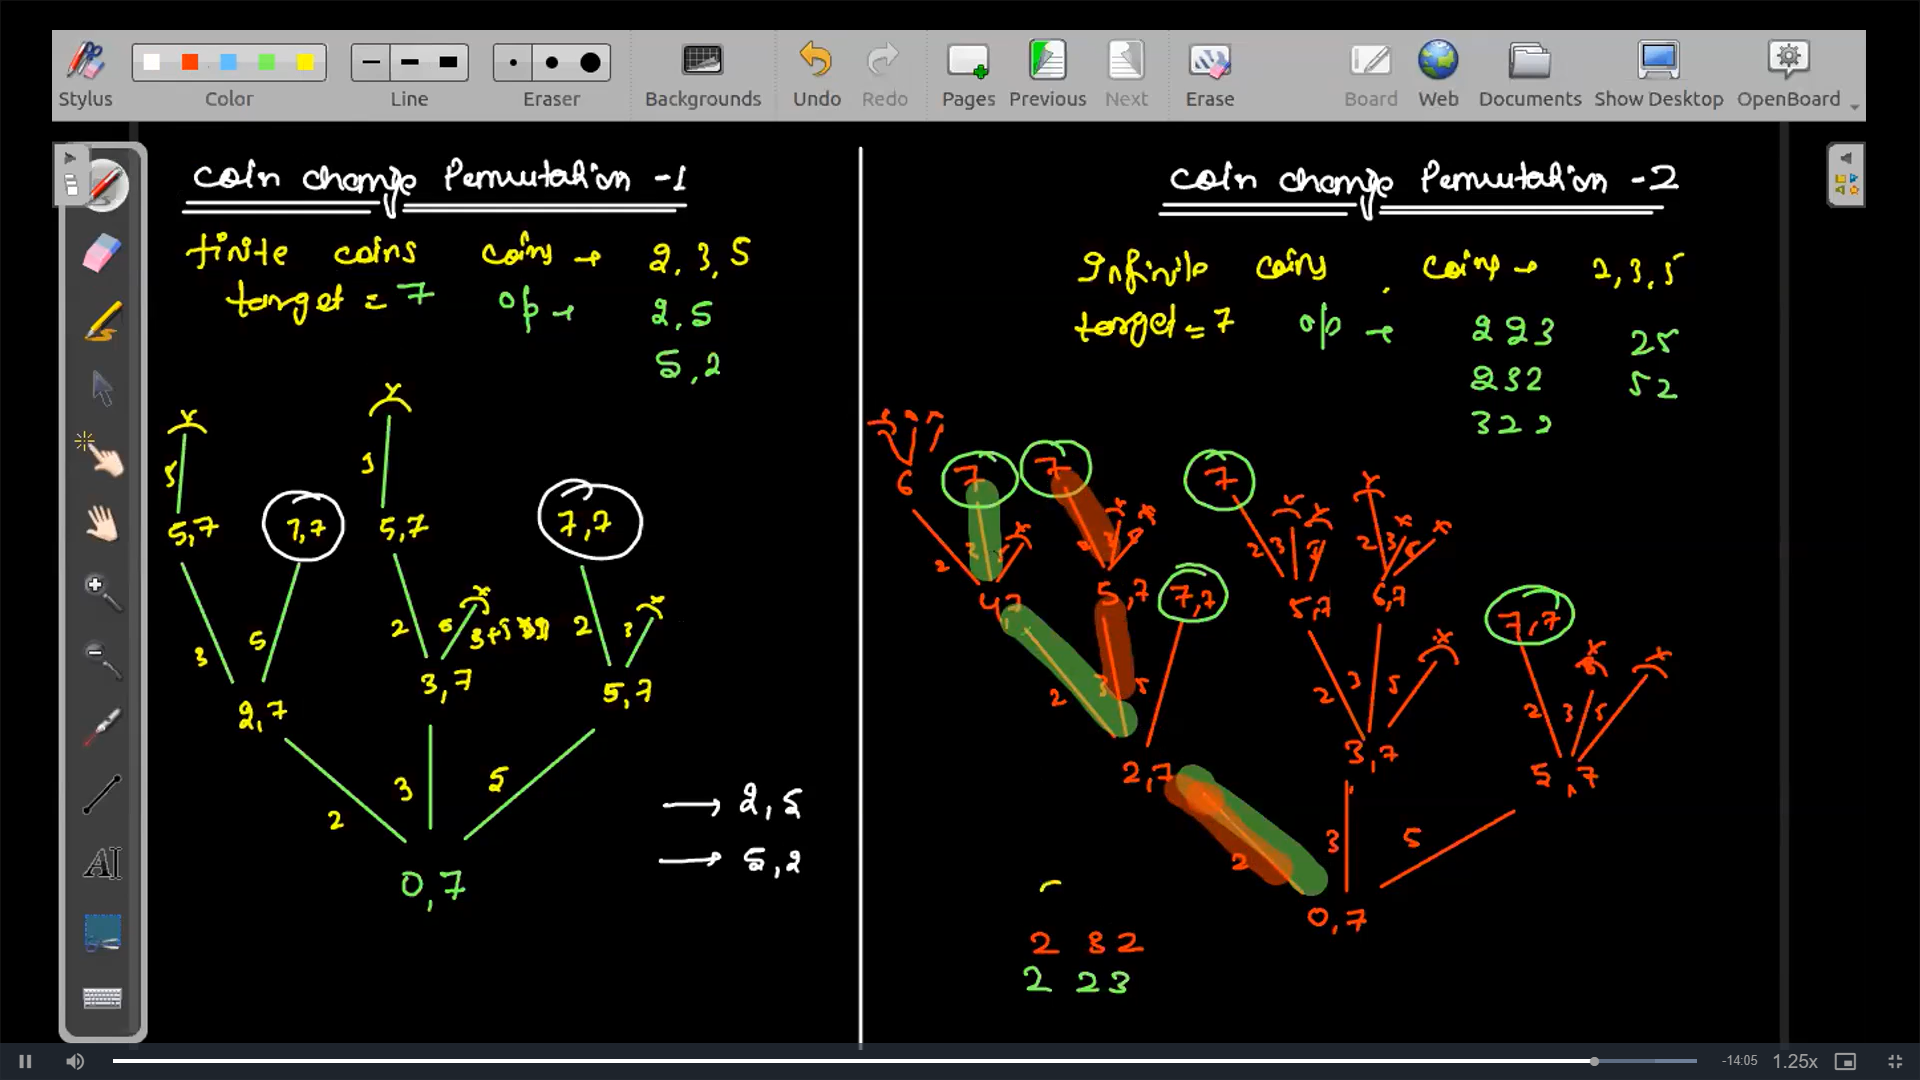 Stylus Color Line Eraser Backgrounds Undo Redo Pages Previous Next Erase Board Web Documents Show Desktop OpenBoard
coin change Permutation -1
finite coins coins → 2, 3, 5
target = 7 o/p → 2,5
5,2
x x
5 3
5,7 7,7 5,7 7,7
x x
3 5 2 5 2 3
2,7 3,7 5,7
2 3 5
0,7
→ 2,5
→ 5,2
coin change Permutation -2
Infinite coins, coins → 2,3,5
target = 7 o/p → 2 2 3 2 5
2 3 2 5 2
3 2 2
6 7 7 7
x x x x x x x x
2 3 5 2 3 5 2 3 5 2 3 5
4,7 5,7 7,7 5,7 6,7 7,7
x x x
2 3 5 2 3 5 2 3 5
2,7 3,7 5,7
2 3 5
0,7
2 3 2
2 2 3
-14:05 1.25x
AI